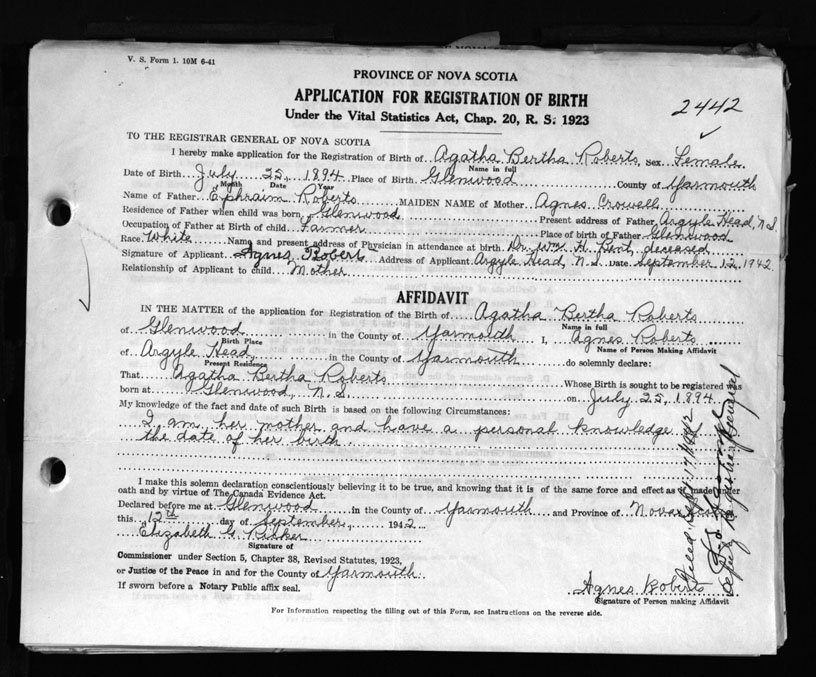 V. S. Form 1. 10M 6-41
PROVINCE OF NOVA SCOTIA
APPLICATION FOR REGISTRATION OF BIRTH
Under the Vital Statistics Act, Chap. 20, R. S. 1923
2442
TO THE REGISTRAR GENERAL OF NOVA SCOTIA
I hereby make application for the Registration of Birth of Agatha Bertha Roberts Sex Female
Name in full
Date of Birth July 25, 1894 Place of Birth Glenwood County of Yarmouth
Month Date Year
Name of Father Ephraim Roberts MAIDEN NAME of Mother Agnes Crowell
Residence of Father when child was born Glenwood Present address of Father Argyle Head, N.S.
Occupation of Father at Birth of child Farmer Place of Birth of Father Glenwood
Race White Name and present address of Physician in attendance at birth Dr. Wm. H. Kent, deceased
Signature of Applicant Agnes Roberts Address of Applicant Argyle Head, N.S. Date September 12, 1942
Relationship of Applicant to child Mother
AFFIDAVIT
IN THE MATTER of the application for Registration of the Birth of Agatha Bertha Roberts
Name in full
of Glenwood in the County of Yarmouth I, Agnes Roberts
Birth Place Name of Person Making Affidavit
of Argyle Head, in the County of Yarmouth do solemnly declare:
Present Residence
That Agatha Bertha Roberts Whose Birth is sought to be registered was
born at Glenwood, N.S. on July 25, 1894
My knowledge of the fact and date of such Birth is based on the following Circumstances:
I am her mother and have a personal knowledge of
the date of her birth
I make this solemn declaration conscientiously believing it to be true, and knowing that it is of the same force and effect as if made under
oath and by virtue of The Canada Evidence Act.
Declared before me at Glenwood in the County of Yarmouth and Province of Nova Scotia
this 12th day of September, 1942
Elizabeth G.
Signature of
Commissioner under Section 5, Chapter 38, Revised Statutes, 1923,
or Justice of the Peace in and for the County of Yarmouth
If sworn before a Notary Public affix seal.
Agnes Roberts
Signature of Person making Affidavit
For Information respecting the filling out of this Form, see Instructions on the reverse side.